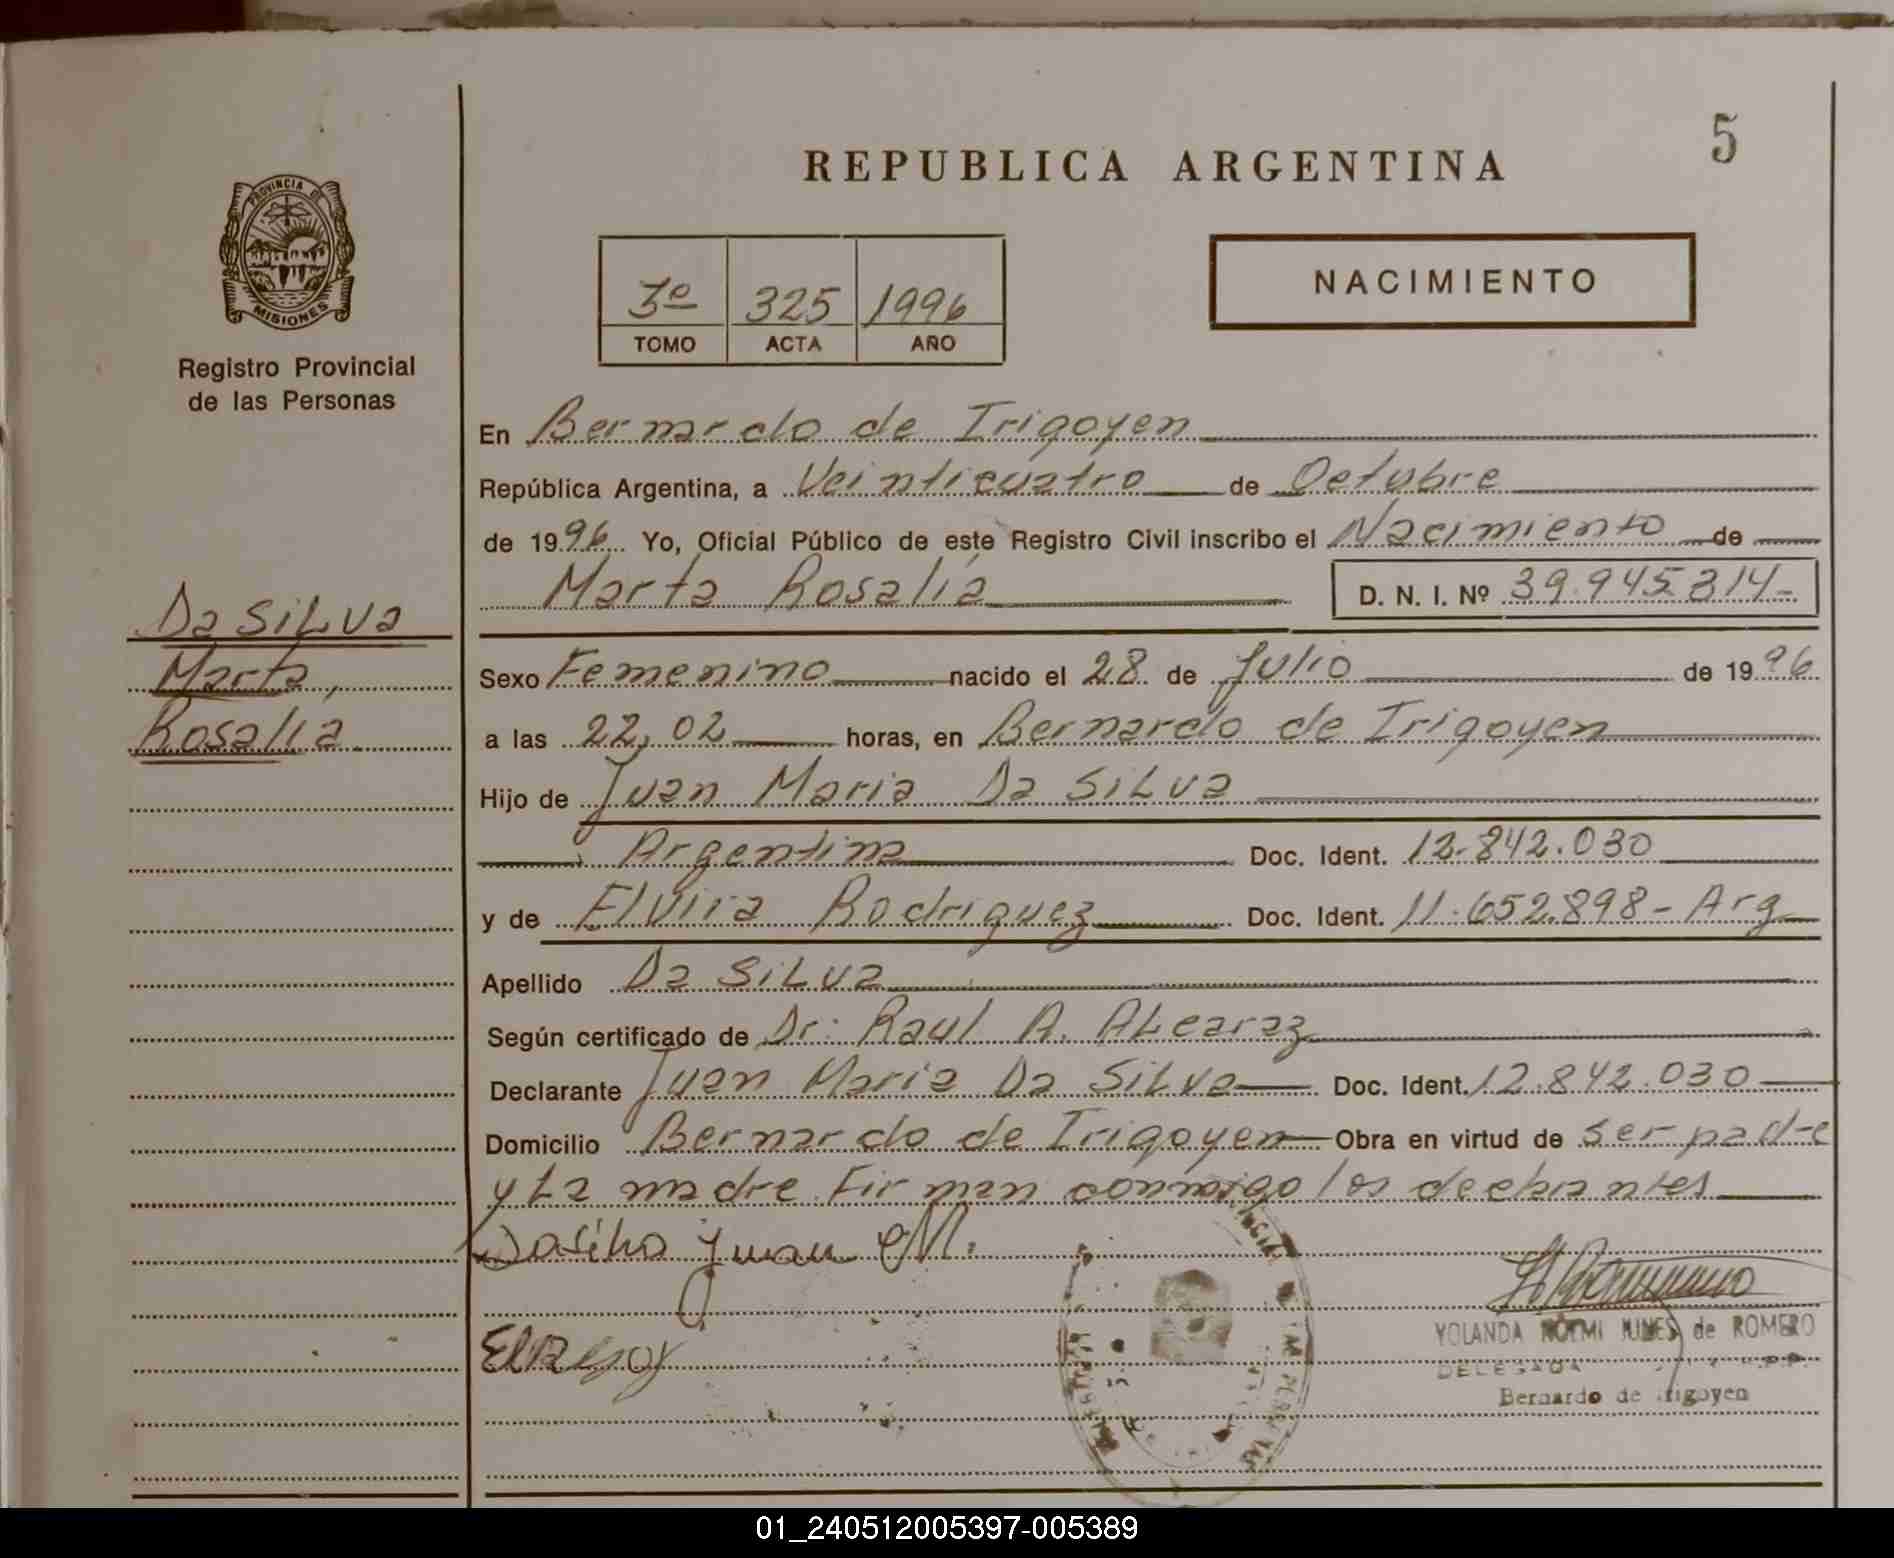 5
REPUBLICA ARGENTINA
PROVINCIA DE
MISIONES
Registro Provincial
de las Personas
3º 325 1996
TOMO ACTA AÑO
NACIMIENTO
En Bernardo de Irigoyen
República Argentina, a Veinticuatro de Octubre
de 1996 Yo, Oficial Público de este Registro Civil inscribo el Nacimiento de
Marta Rosalía D. N. I. Nº 39.945.314-
Da SiLva
Marta,
Rosalía
Sexo Femenino nacido el 28 de Julio de 1996
a las 22,02 horas, en Bernardo de Irigoyen
Hijo de Juan Maria Da SiLva
Argentina Doc. Ident. 12.842.030
y de Elvira Rodriguez Doc. Ident. 11.652.898- Arg
Apellido Da SiLva
Según certificado de Dr: Raul A. ALcaraz
Declarante Juan Maria Da SiLva Doc. Ident. 12.842.030
Domicilio Bernardo de Irigoyen Obra en virtud de ser padre
y La madre. Firman conmigo los declarantes
Dasilva Juan M.
YOLANDA NOEMI de ROMERO
DELEGADA
Bernardo de Irigoyen
01_240512005397-005389